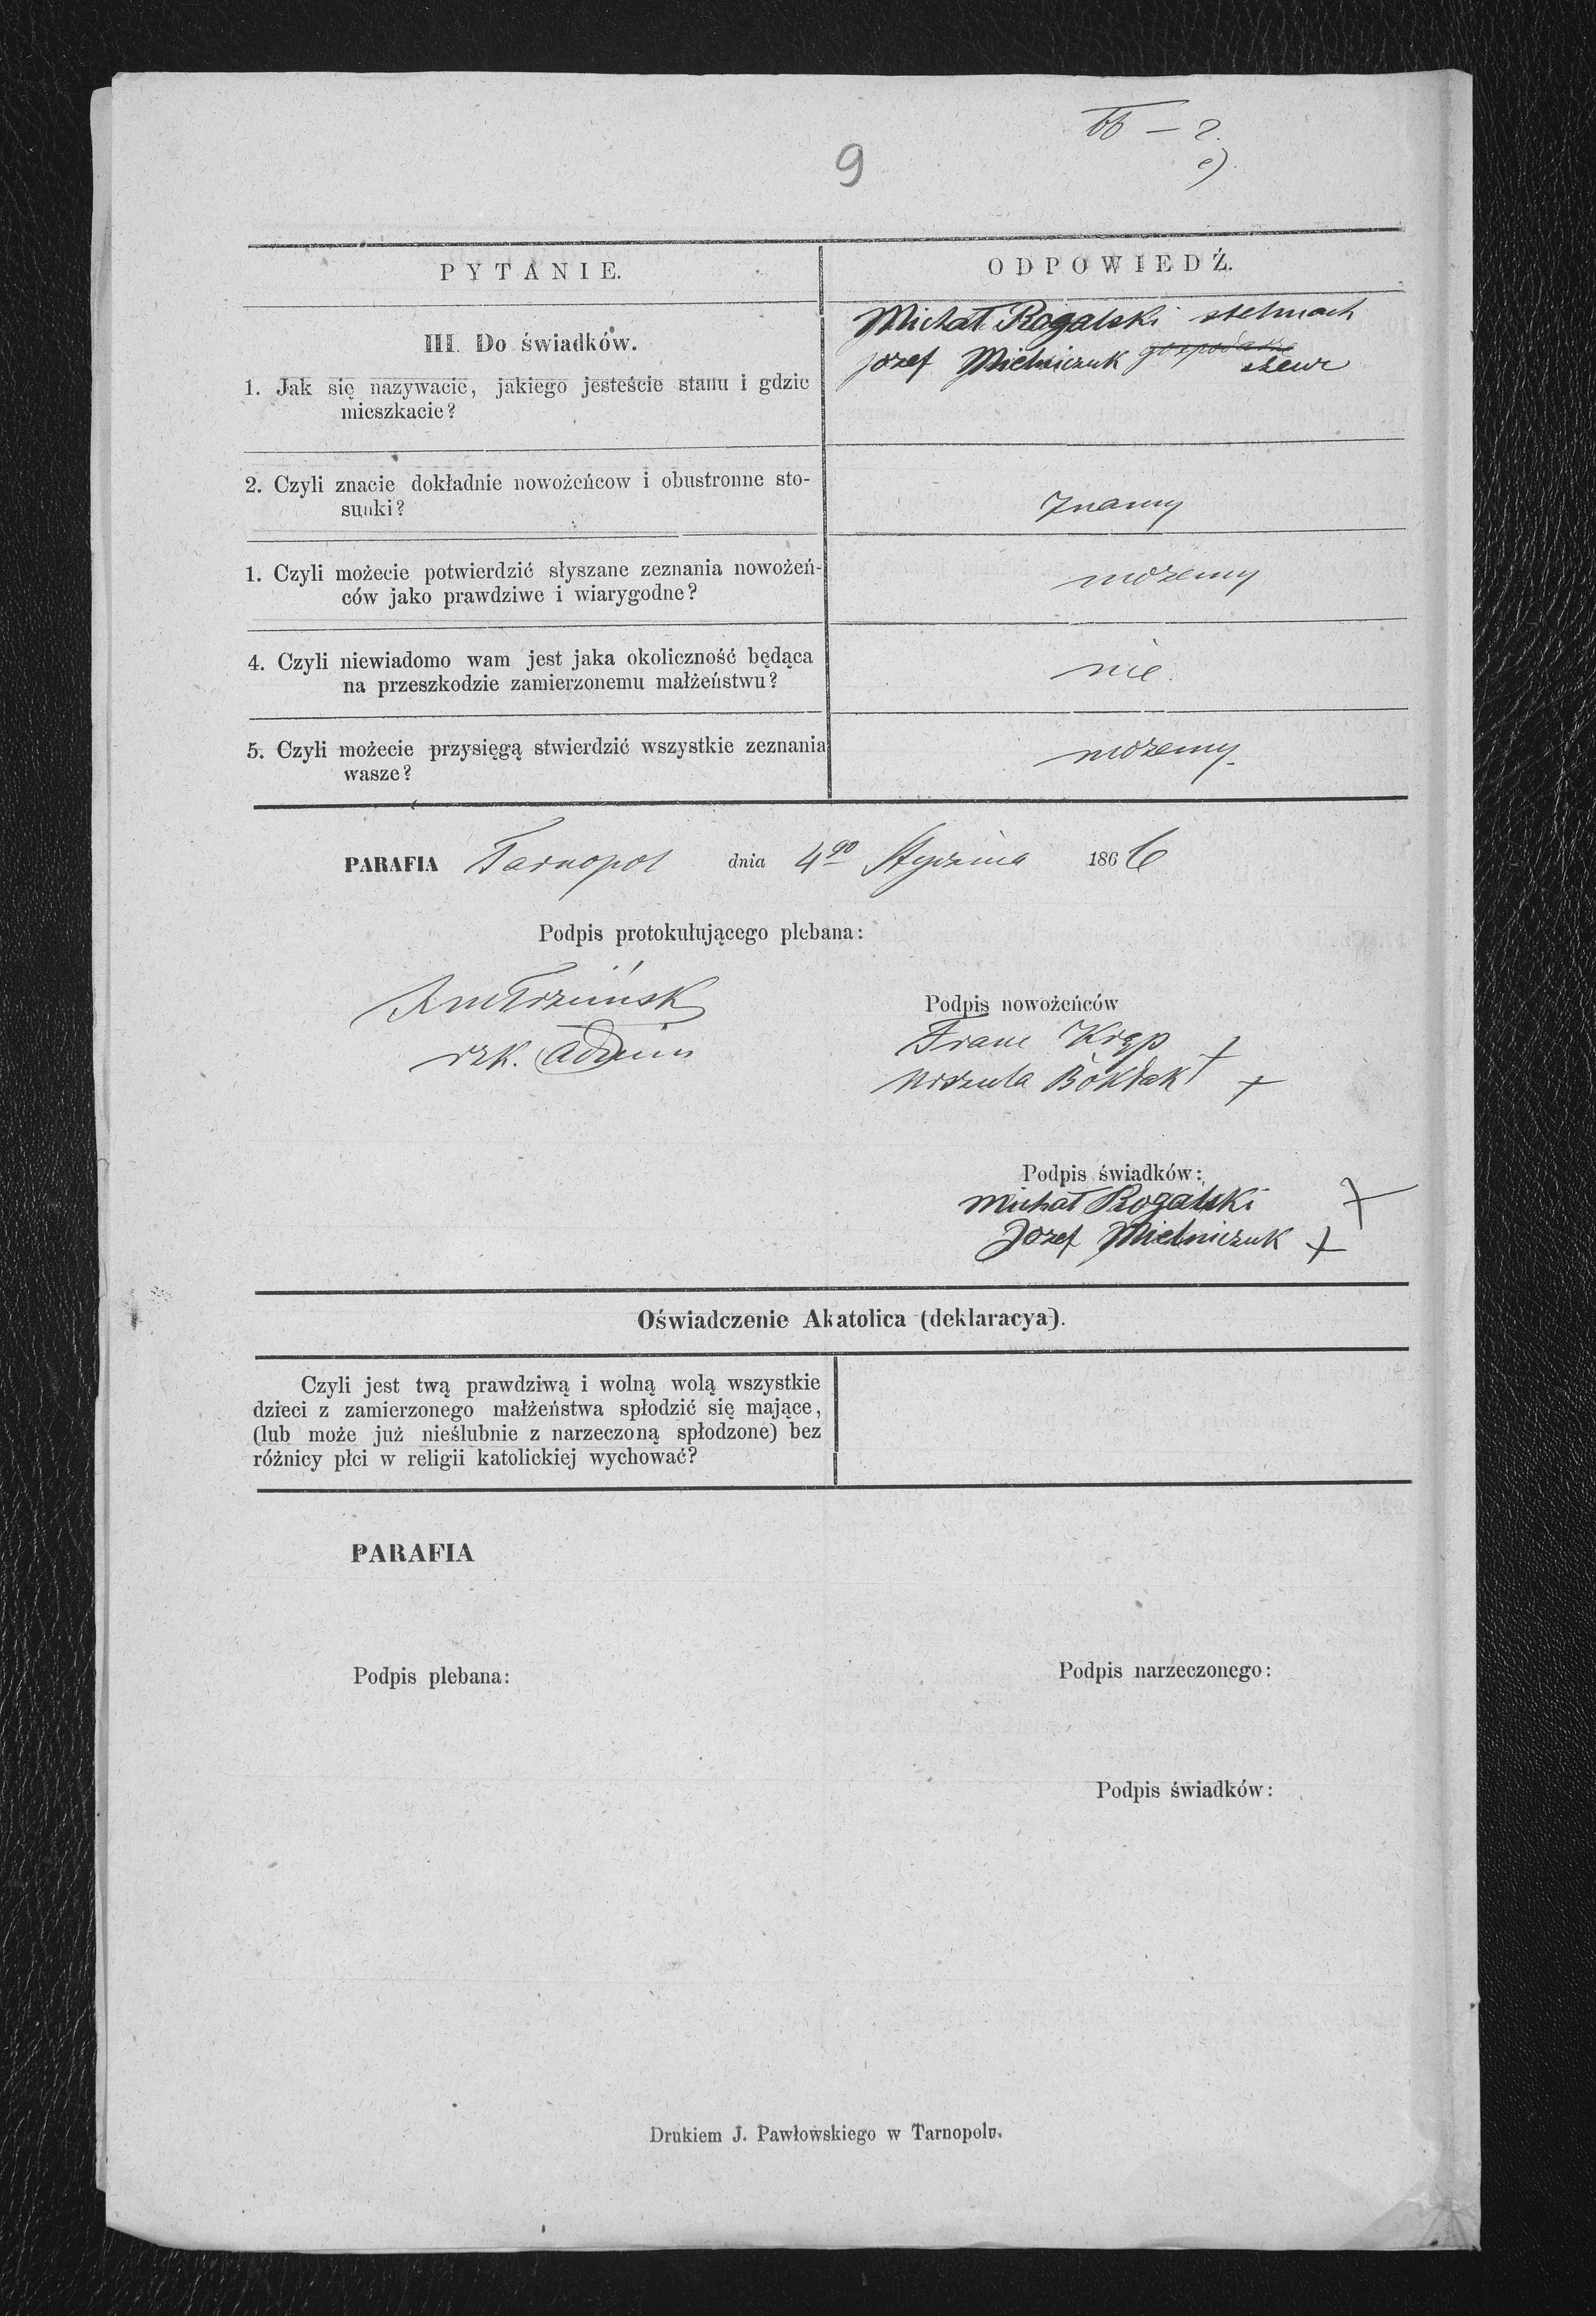 9
PYTANIE.
ODPOWIEDŹ.
III. Do świadków.
Michał Rogalski stelmach
Jozef Mielniczuk gospodarz
szewc
1. Jak się nazywacie, jakiego jesteście stanu i gdzie
mieszkacie?
2. Czyli znacie dokładnie nowożeńcow i obustronne sto-
sunki?
znamy
1. Czyli możecie potwierdzić słyszane zeznania nowożeń-
ców jako prawdziwe i wiarygodne?
możemy
4. Czyli niewiadomo wam jest jaka okoliczność będąca
na przeszkodzie zamierzonemu małżeństwu?
nie.
5. Czyli możecie przysięgą stwierdzić wszystkie zeznania
wasze?
możemy.
PARAFIA Tarnopol dnia 4go Stycznia 1866
Podpis protokułującego plebana:
rzk. Admin
Podpis nowożeńców
Franc Krąp +
Urszula Bókłak +
Podpis świadków:
Michał Rogalski +
Jozef Mielniczuk +
Oświadczenie Akatolica (deklaracya).
Czyli jest twą prawdziwą i wolną wolą wszystkie
dzieci z zamierzonego małżeństwa spłodzić się mające,
(lub może już nieślubnie z narzeczoną spłodzone) bez
różnicy płci w religii katolickiej wychować?
PARAFIA
Podpis plebana:
Podpis narzeczonego:
Podpis świadków:
Drukiem J. Pawłowskiego w Tarnopolu.